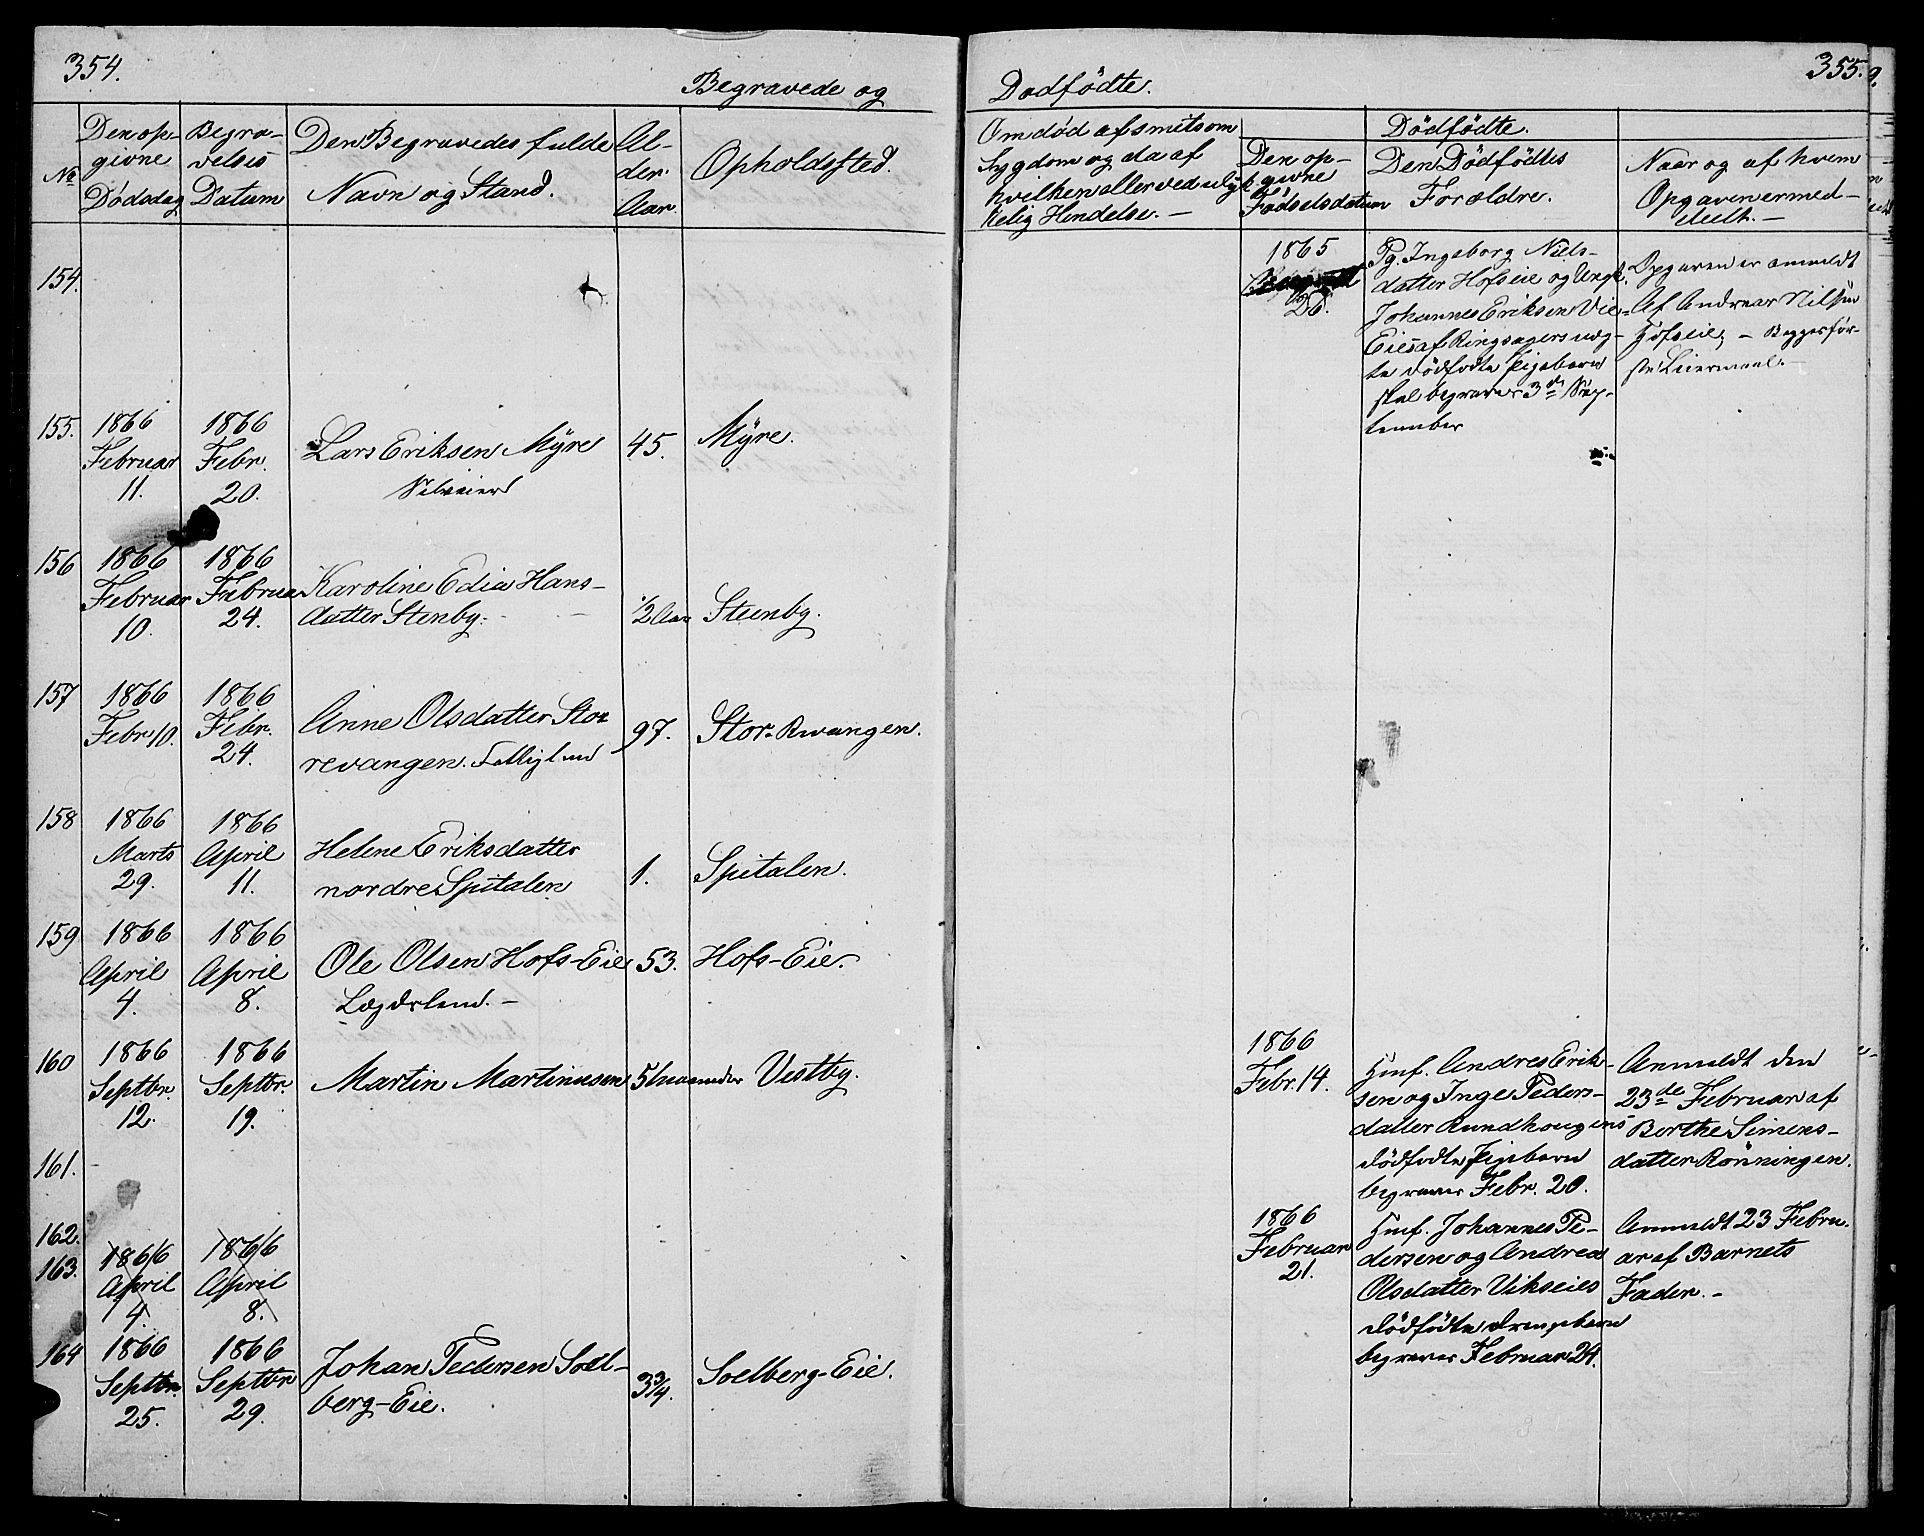 354.
Begravede og
No
Den op-
givne
Dödsdag
Begra-
velses
Datum
Den Begravedes fulde
Navn og Stand.
Al-
der.
Aar.
Opholdssted.
154.
155.
1866
Februar
11.
1866
Febr.
20.
Lars Eriksen Myre
Selveier
45.
Myre.
156
1866
Februar
10.
1866
Februar
24.
Karoline Edia Hans-
datter Stenby.
1/2 Aar
Steenby.
157
1866
Febr. 10.
1866
Febr.
24.
Anne Olsdatter Sto-
revangen. Fattiglem
97.
Stor-Rwangen.
158
1866
Marts
29.
1866
April
11.
Helene Eriksdatter
nordre Spitalen
1.
Spitalen.
159
1866
April
4.
1866
April
8.
Ole Olsen Hofs-Eie
Lægdslem. -
53.
Hofs-Eie.
160
1866
Septbr.
12.
1866
Septbr.
19.
Martin Martinusen
5 Maaneder
Vestby.
161.
162.
163.
1866
April
4.
1866
April
8.
164
1866
Septbr.
25.
1866
Septbr
29.
Johan Pedersen Soel-
berg-Eie.
3 3/4.
Soelberg-Eie.
355.
Dødfödte.
Om død af smitsom
Sygdom og da af
hvilken aller ved ulyk-
kelig Hendelse. -
Dödfödte.
Den op-
givne
Fødselsdatum
Den Dödfödtes
Forældre.
Naar og af hvem
Opgaven er med-
deelt. -
1865
26.
Pg. Ingeborg Niels-
datter Hofseie og Ungk.
Johannes Eriksen Vie-
Eies af Ringsagers uæg-
te dödfödte Pigebarn
skal begraves 3de Sep-
tember
Opgaven er anmeldt
Af Andreas Nilsen
Hofseie, - Begges før-
ste Leiermaal. -
1866
Febr. 14.
Huusf. Andres Erik-
sen og Inge Peders-
datter Rundhougens
dödfödte Pigebarn
begraves Febr. 20.
Anmeldt den
23de Februar af
Berthe Simens-
datter Rönningen.
1866
Februar
21.
Huusf. Johannes Pe-
dersen og Andrea
Olsdatter Vikseies
dödfödte Drengebarn
begraves Februar 24.
Anmeldt 23 Febru-
ar af Barnets
Fader. -